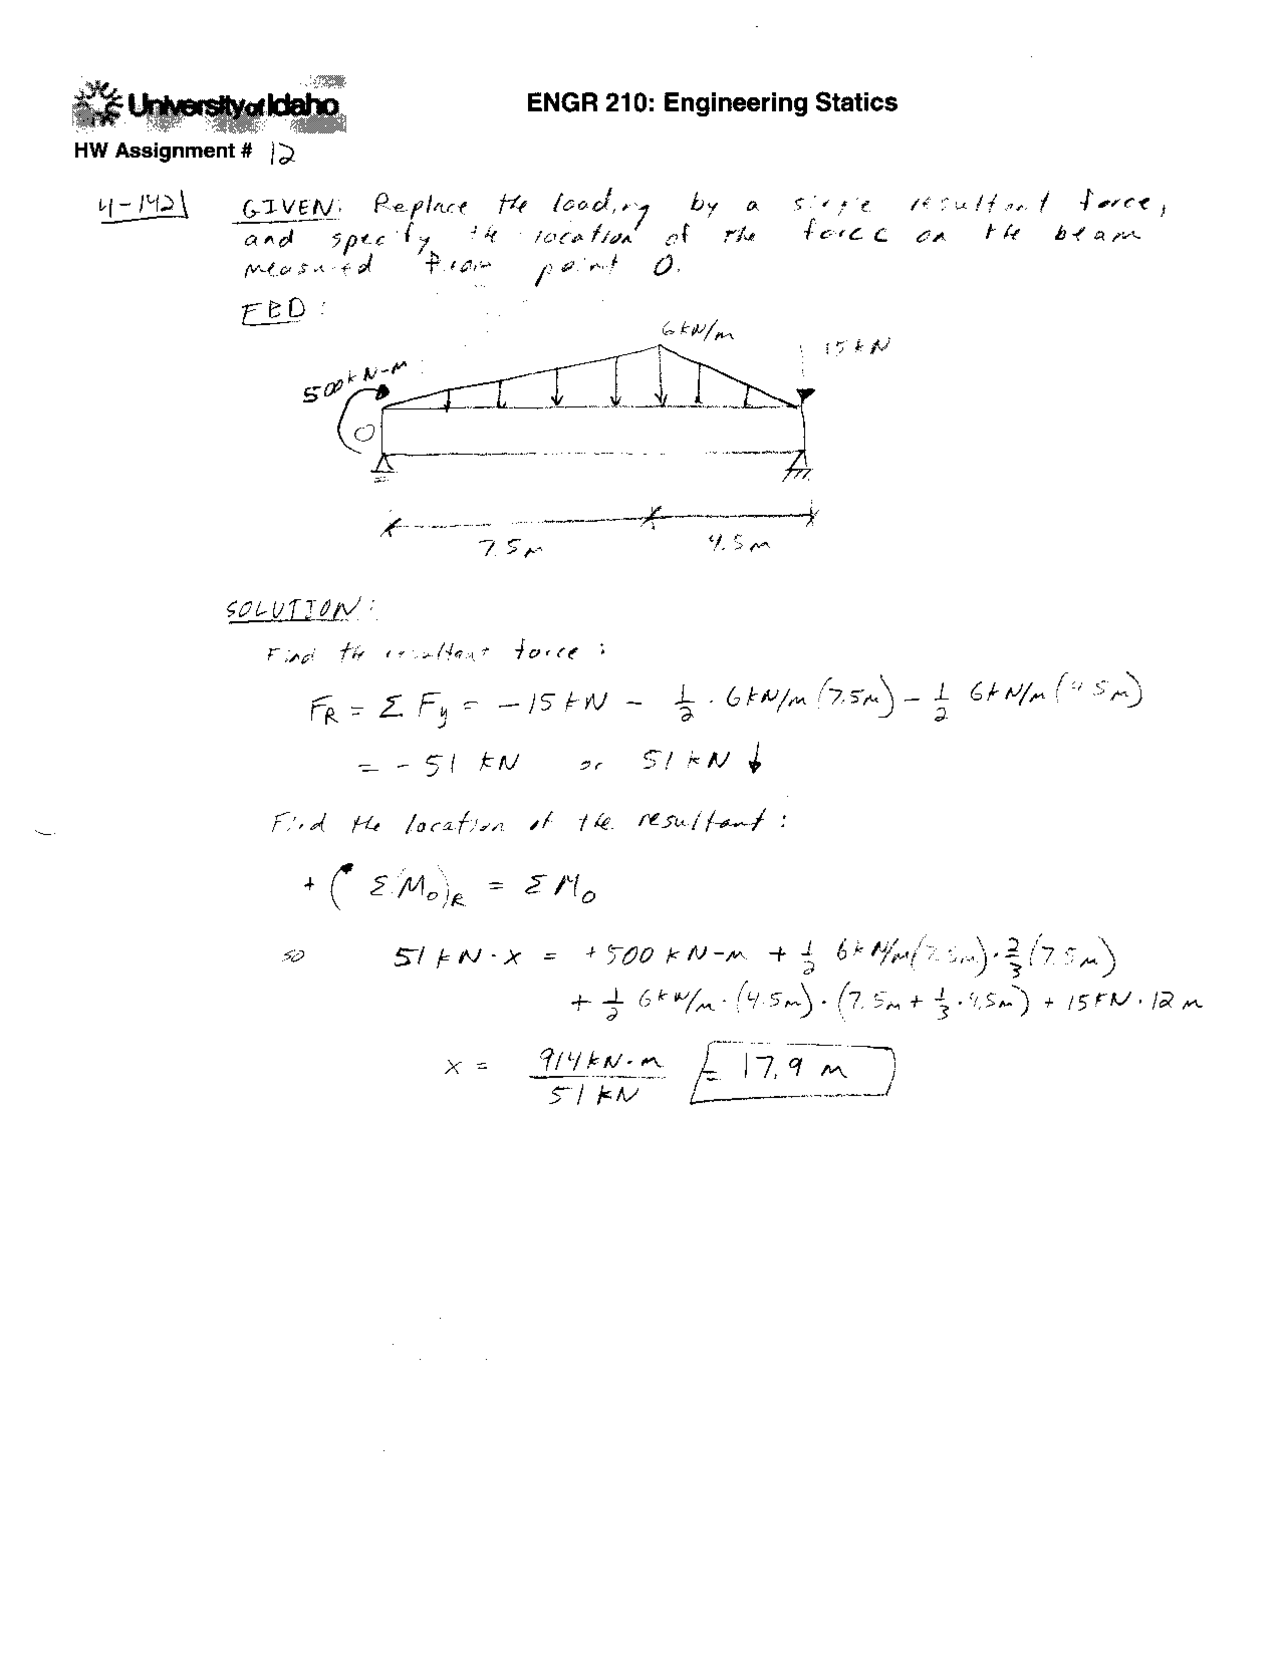 University of Idaho
ENGR 210: Engineering Statics
HW Assignment # 12
4-142 GIVEN: Replace the loading by a single resultant force,
and specify the location of the force on the beam
measured from point O.
FBD:
6 kN/m
15 kN
500 kN-m
O
7.5m
4.5m
SOLUTION:
Find the resultant force:
F_R = Σ F_y = -15 kN - 1/2 · 6 kN/m (7.5m) - 1/2 6 kN/m (4.5m)
= - 51 kN or 51 kN ↓
Find the location of the resultant:
+ ( Σ M_O)_R = Σ M_O
so 51 kN · x = +500 kN-m + 1/2 6 kN/m (7.5m) · 2/3 (7.5m)
+ 1/2 6 kN/m · (4.5m) · (7.5m + 1/3 · 4.5m) + 15 kN · 12 m
x = 914 kN·m / 51 kN = 17.9 m